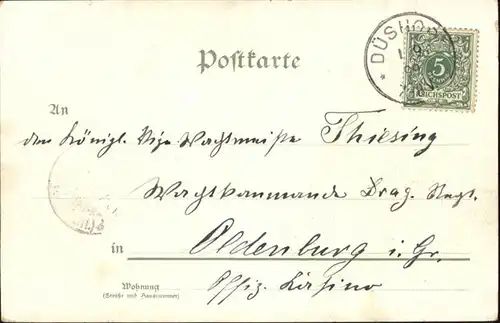 Postkarte
DÜSHO
5
PFENNIG
REICHSPOST
An
den Königl. Vize Wachtmeister Thiesing
Wachtkommando Drag. Regt.
in Oldenburg i. Gr.
Offiz. Kasino
Wohnung
(Straße und Hausnummer)